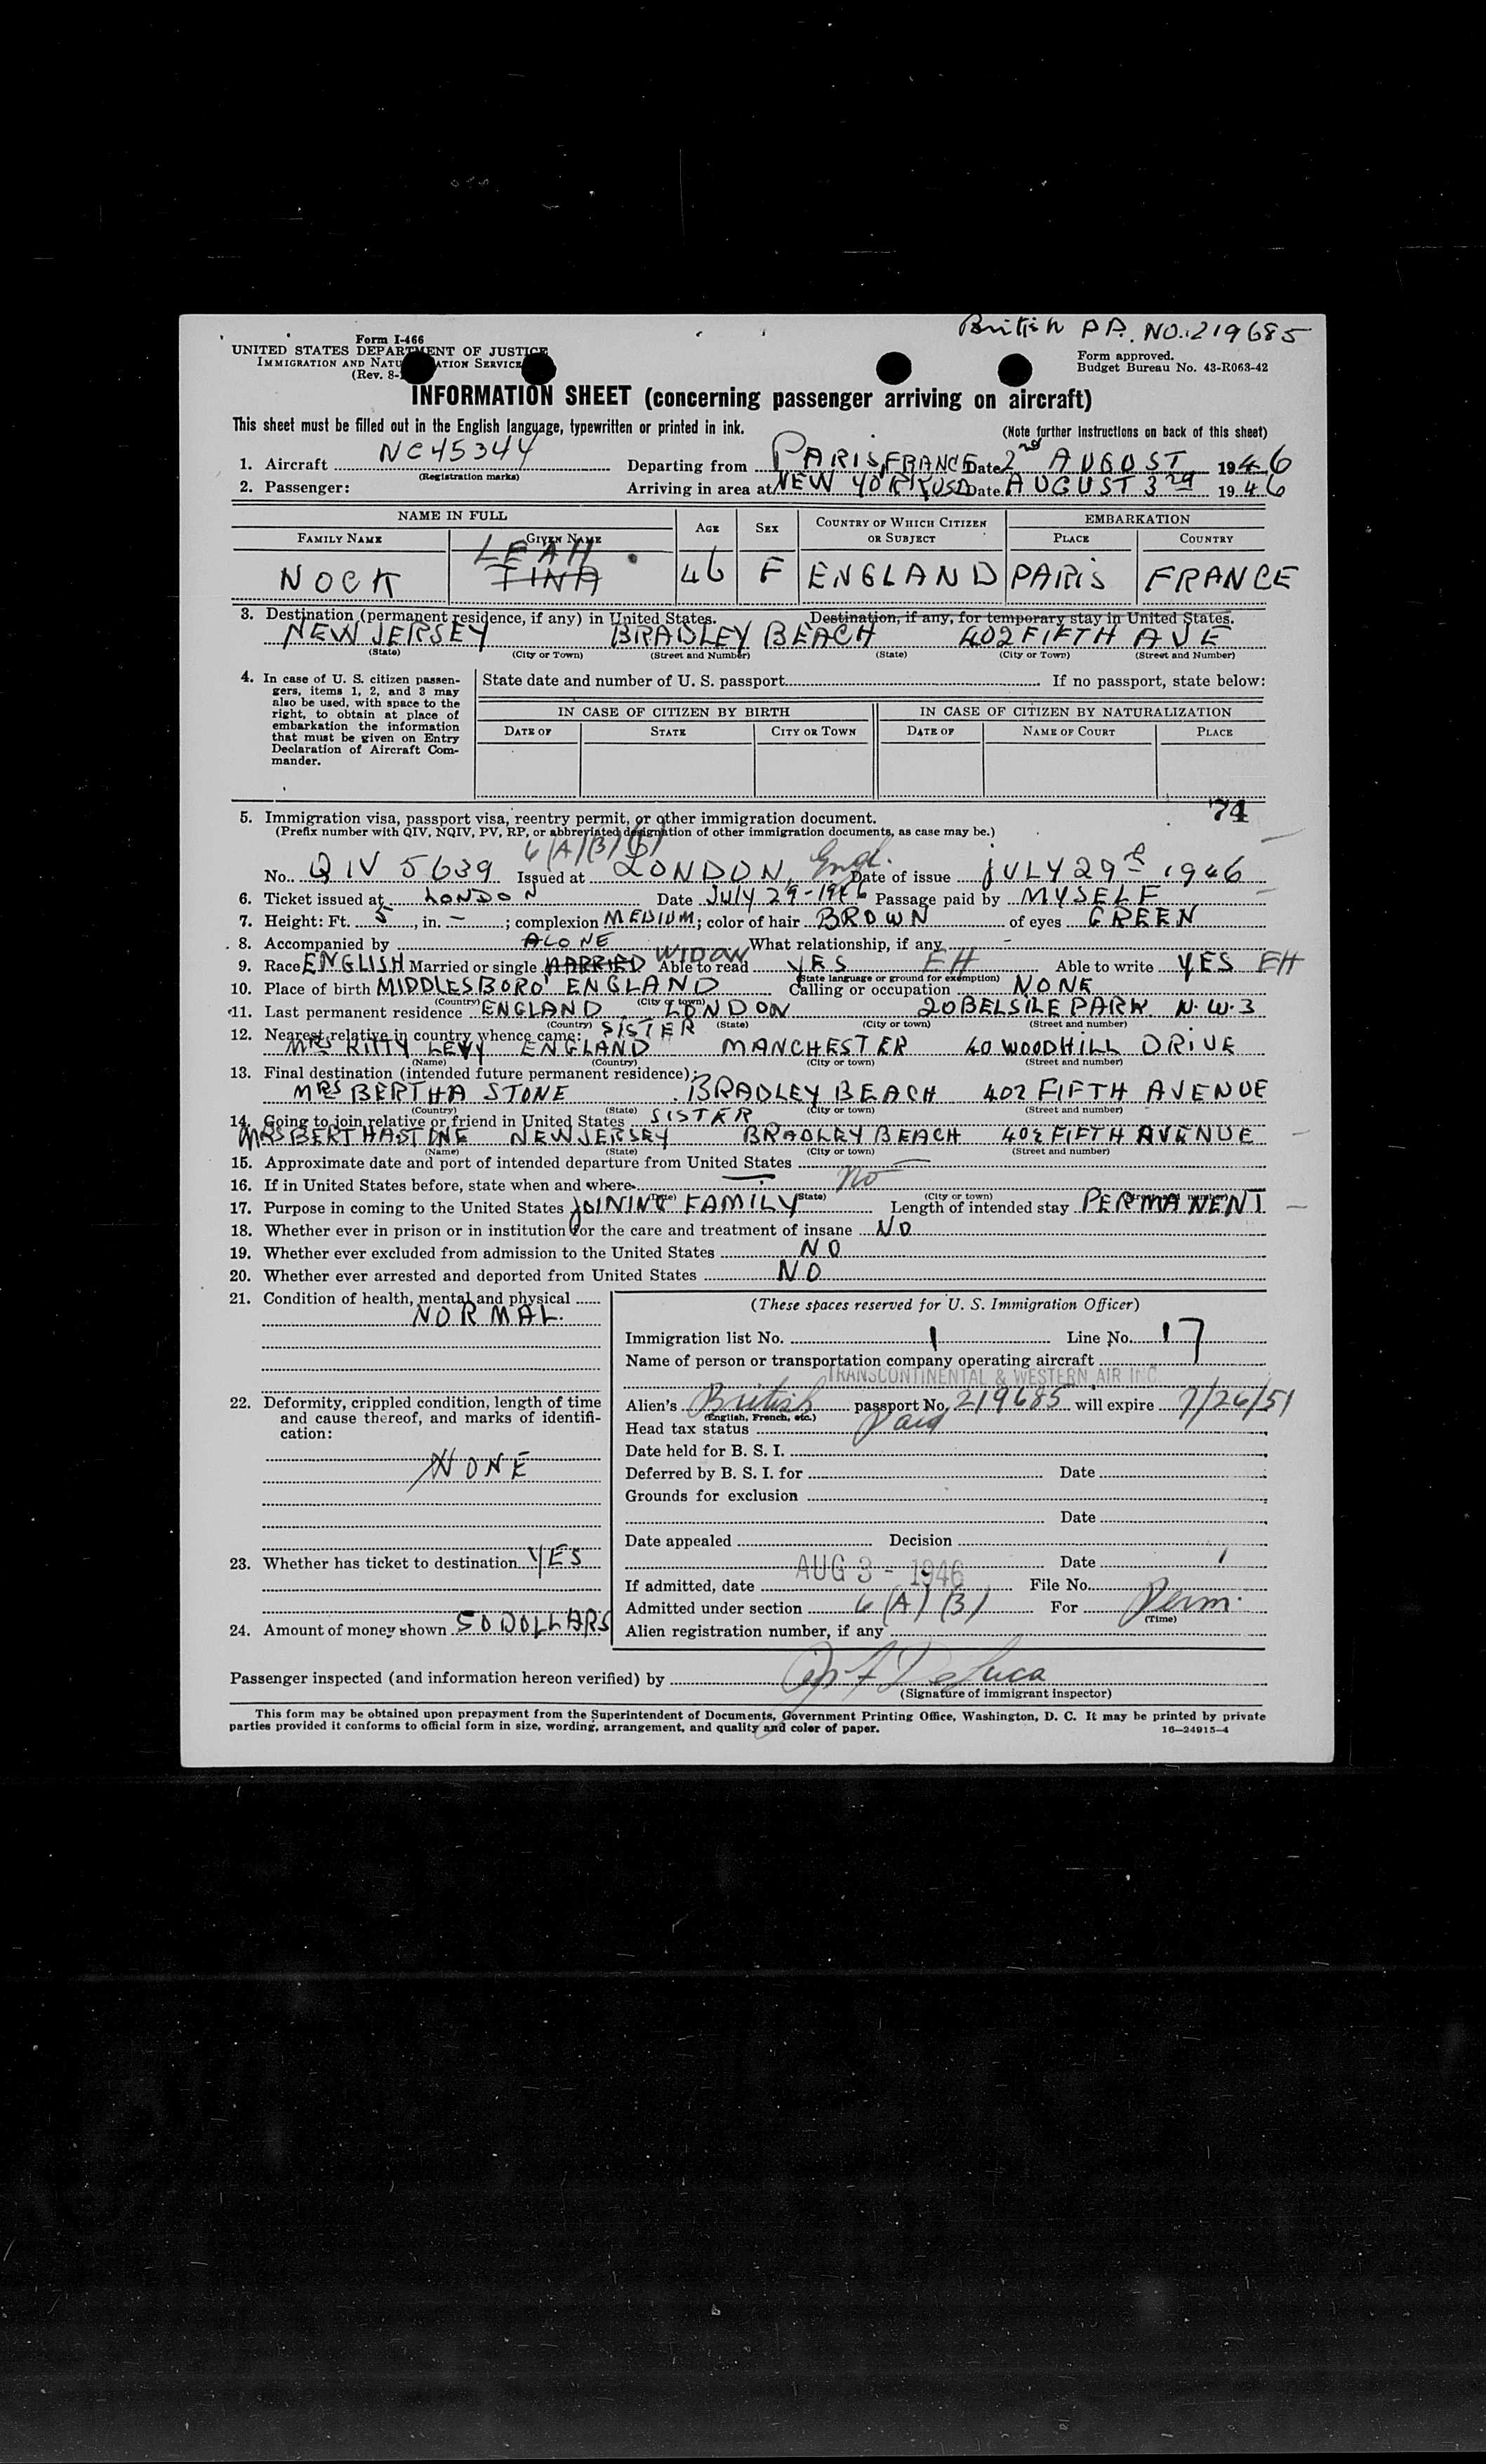 British P.P. NO. 219685
Form I-466
UNITED STATES DEPARTMENT OF JUSTICE
IMMIGRATION AND NATU ATION SERVICE
(Rev. 8-
Form approved.
Budget Bureau No. 43-R063-42
INFORMATION SHEET (concerning passenger arriving on aircraft)
This sheet must be filled out in the English language, typewritten or printed in ink.
(Note further instructions on back of this sheet)
1. Aircraft NC45344 Departing from PARIS, FRANCE Date 2nd AUGUST 1946
(Registration marks)
2. Passenger: Arriving in area at NEW YORK USA Date AUGUST 3rd 1946
NAME IN FULL AGE SEX COUNTRY OF WHICH CITIZEN OR SUBJECT EMBARKATION
FAMILY NAME GIVEN NAME PLACE COUNTRY
LEAH
NOCK TINA 46 F ENGLAND PARIS FRANCE
3. Destination (permanent residence, if any) in United States. Destination, if any, for temporary stay in United States.
NEW JERSEY BRADLEY BEACH 402 FIFTH AVE
(State) (City or Town) (Street and Number) (State) (City or Town) (Street and Number)
4. In case of U. S. citizen passen-
gers, items 1, 2, and 3 may
also be used, with space to the
right, to obtain at place of
embarkation the information
that must be given on Entry
Declaration of Aircraft Com-
mander.
State date and number of U. S. passport If no passport, state below:
IN CASE OF CITIZEN BY BIRTH IN CASE OF CITIZEN BY NATURALIZATION
DATE OF STATE CITY OR TOWN DATE OF NAME OF COURT PLACE
74
5. Immigration visa, passport visa, reentry permit, or other immigration document.
(Prefix number with QIV, NQIV, PV, RP, or abbreviated designation of other immigration documents, as case may be.)
6(A)(3)
No. QIV 5639 Issued at LONDON, Engl. Date of issue JULY 29th 1946
6. Ticket issued at LONDON Date JULY 29-1946 Passage paid by MYSELF
7. Height: Ft. 5, in. –; complexion MEDIUM; color of hair BROWN of eyes GREEN
8. Accompanied by ALONE What relationship, if any –
WIDOW
9. Race ENGLISH Married or single MARRIED Able to read YES EH Able to write YES EH
(State language or ground for exemption)
10. Place of birth MIDDLESBORO' ENGLAND Calling or occupation NONE
(Country) (City or town)
11. Last permanent residence ENGLAND LONDON 20 BELSILE PARK N.W.3
(Country) (State) (City or town) (Street and number)
12. Nearest relative in country whence came: SISTER
MRS KITTY LEVY ENGLAND MANCHESTER 40 WOODHILL DRIVE
(Name) (Country) (City or town) (Street and number)
13. Final destination (intended future permanent residence):
MRS BERTHA STONE BRADLEY BEACH 402 FIFTH AVENUE
(Country) (State) (City or town) (Street and number)
14. Going to join relative or friend in United States SISTER
MRS BERTHA STONE NEW JERSEY BRADLEY BEACH 402 FIFTH AVENUE
(Name) (State) (City or town) (Street and number)
15. Approximate date and port of intended departure from United States
16. If in United States before, state when and where no
(Date) (State) (City or town) (Street and number)
17. Purpose in coming to the United States JOINING FAMILY Length of intended stay PERMANENT
18. Whether ever in prison or in institution for the care and treatment of insane NO
19. Whether ever excluded from admission to the United States NO
20. Whether ever arrested and deported from United States NO
21. Condition of health, mental and physical
NORMAL.
22. Deformity, crippled condition, length of time
and cause thereof, and marks of identifi-
cation:
NONE
23. Whether has ticket to destination YES
24. Amount of money shown 50 DOLLARS
(These spaces reserved for U. S. Immigration Officer)
Immigration list No. 1 Line No. 17
Name of person or transportation company operating aircraft
TRANSCONTINENTAL & WESTERN AIR INC.
Alien's British passport No. 219685 will expire 7/26/51
(English, French, etc.)
Head tax status Paid
Date held for B. S. I.
Deferred by B. S. I. for Date
Grounds for exclusion
Date
Date appealed Decision
Date
If admitted, date AUG 3 - 1946 File No.
Admitted under section 6(A)(3) For Perm.
(Time)
Alien registration number, if any
Passenger inspected (and information hereon verified) by DeLuca
(Signature of immigrant inspector)
This form may be obtained upon prepayment from the Superintendent of Documents, Government Printing Office, Washington, D. C. It may be printed by private
parties provided it conforms to official form in size, wording, arrangement, and quality and color of paper.
16—24915-4